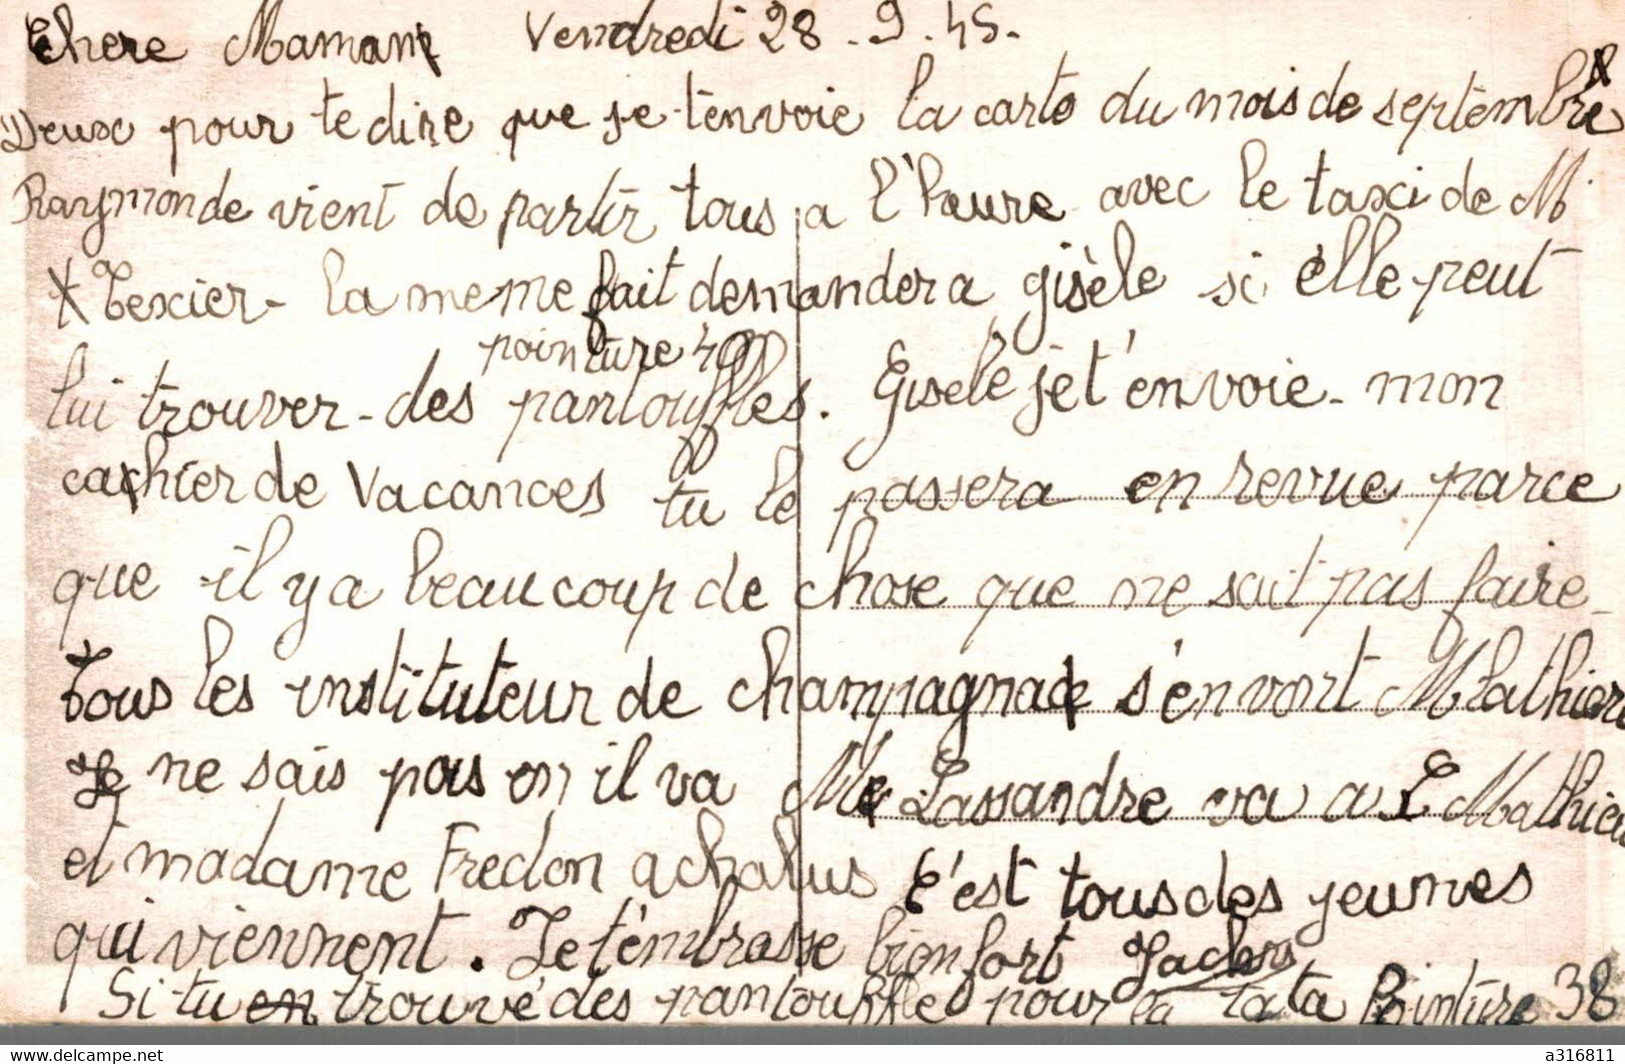 Chere Maman Vendredi 28.9.45.
Deux pour te dire que je t'envoie la carte du mois de septembre
Raymonde vient de partir tous a l'heure avec le taxi de M.
Texier - la meme fait demander a gisèle si elle peut
pointure 40
lui trouver des pantouffles. Gisele je t'envoie mon
cachier de vacances tu le passera en revue parce
que il y a beaucoup de chose que ne sait pas faire
Tous les instituteur de champagnac s'en vont Mathieu
Je ne sais pas ou il va Me Lassandre va a S Mathieu
et madame Fredon a chalus C'est tous des jeunes
qui viennent. Je t'embrasse bien fort
Si tu trouve des pantouffles pour la tata Pointure 38
https://www.delcampe.net
a316811